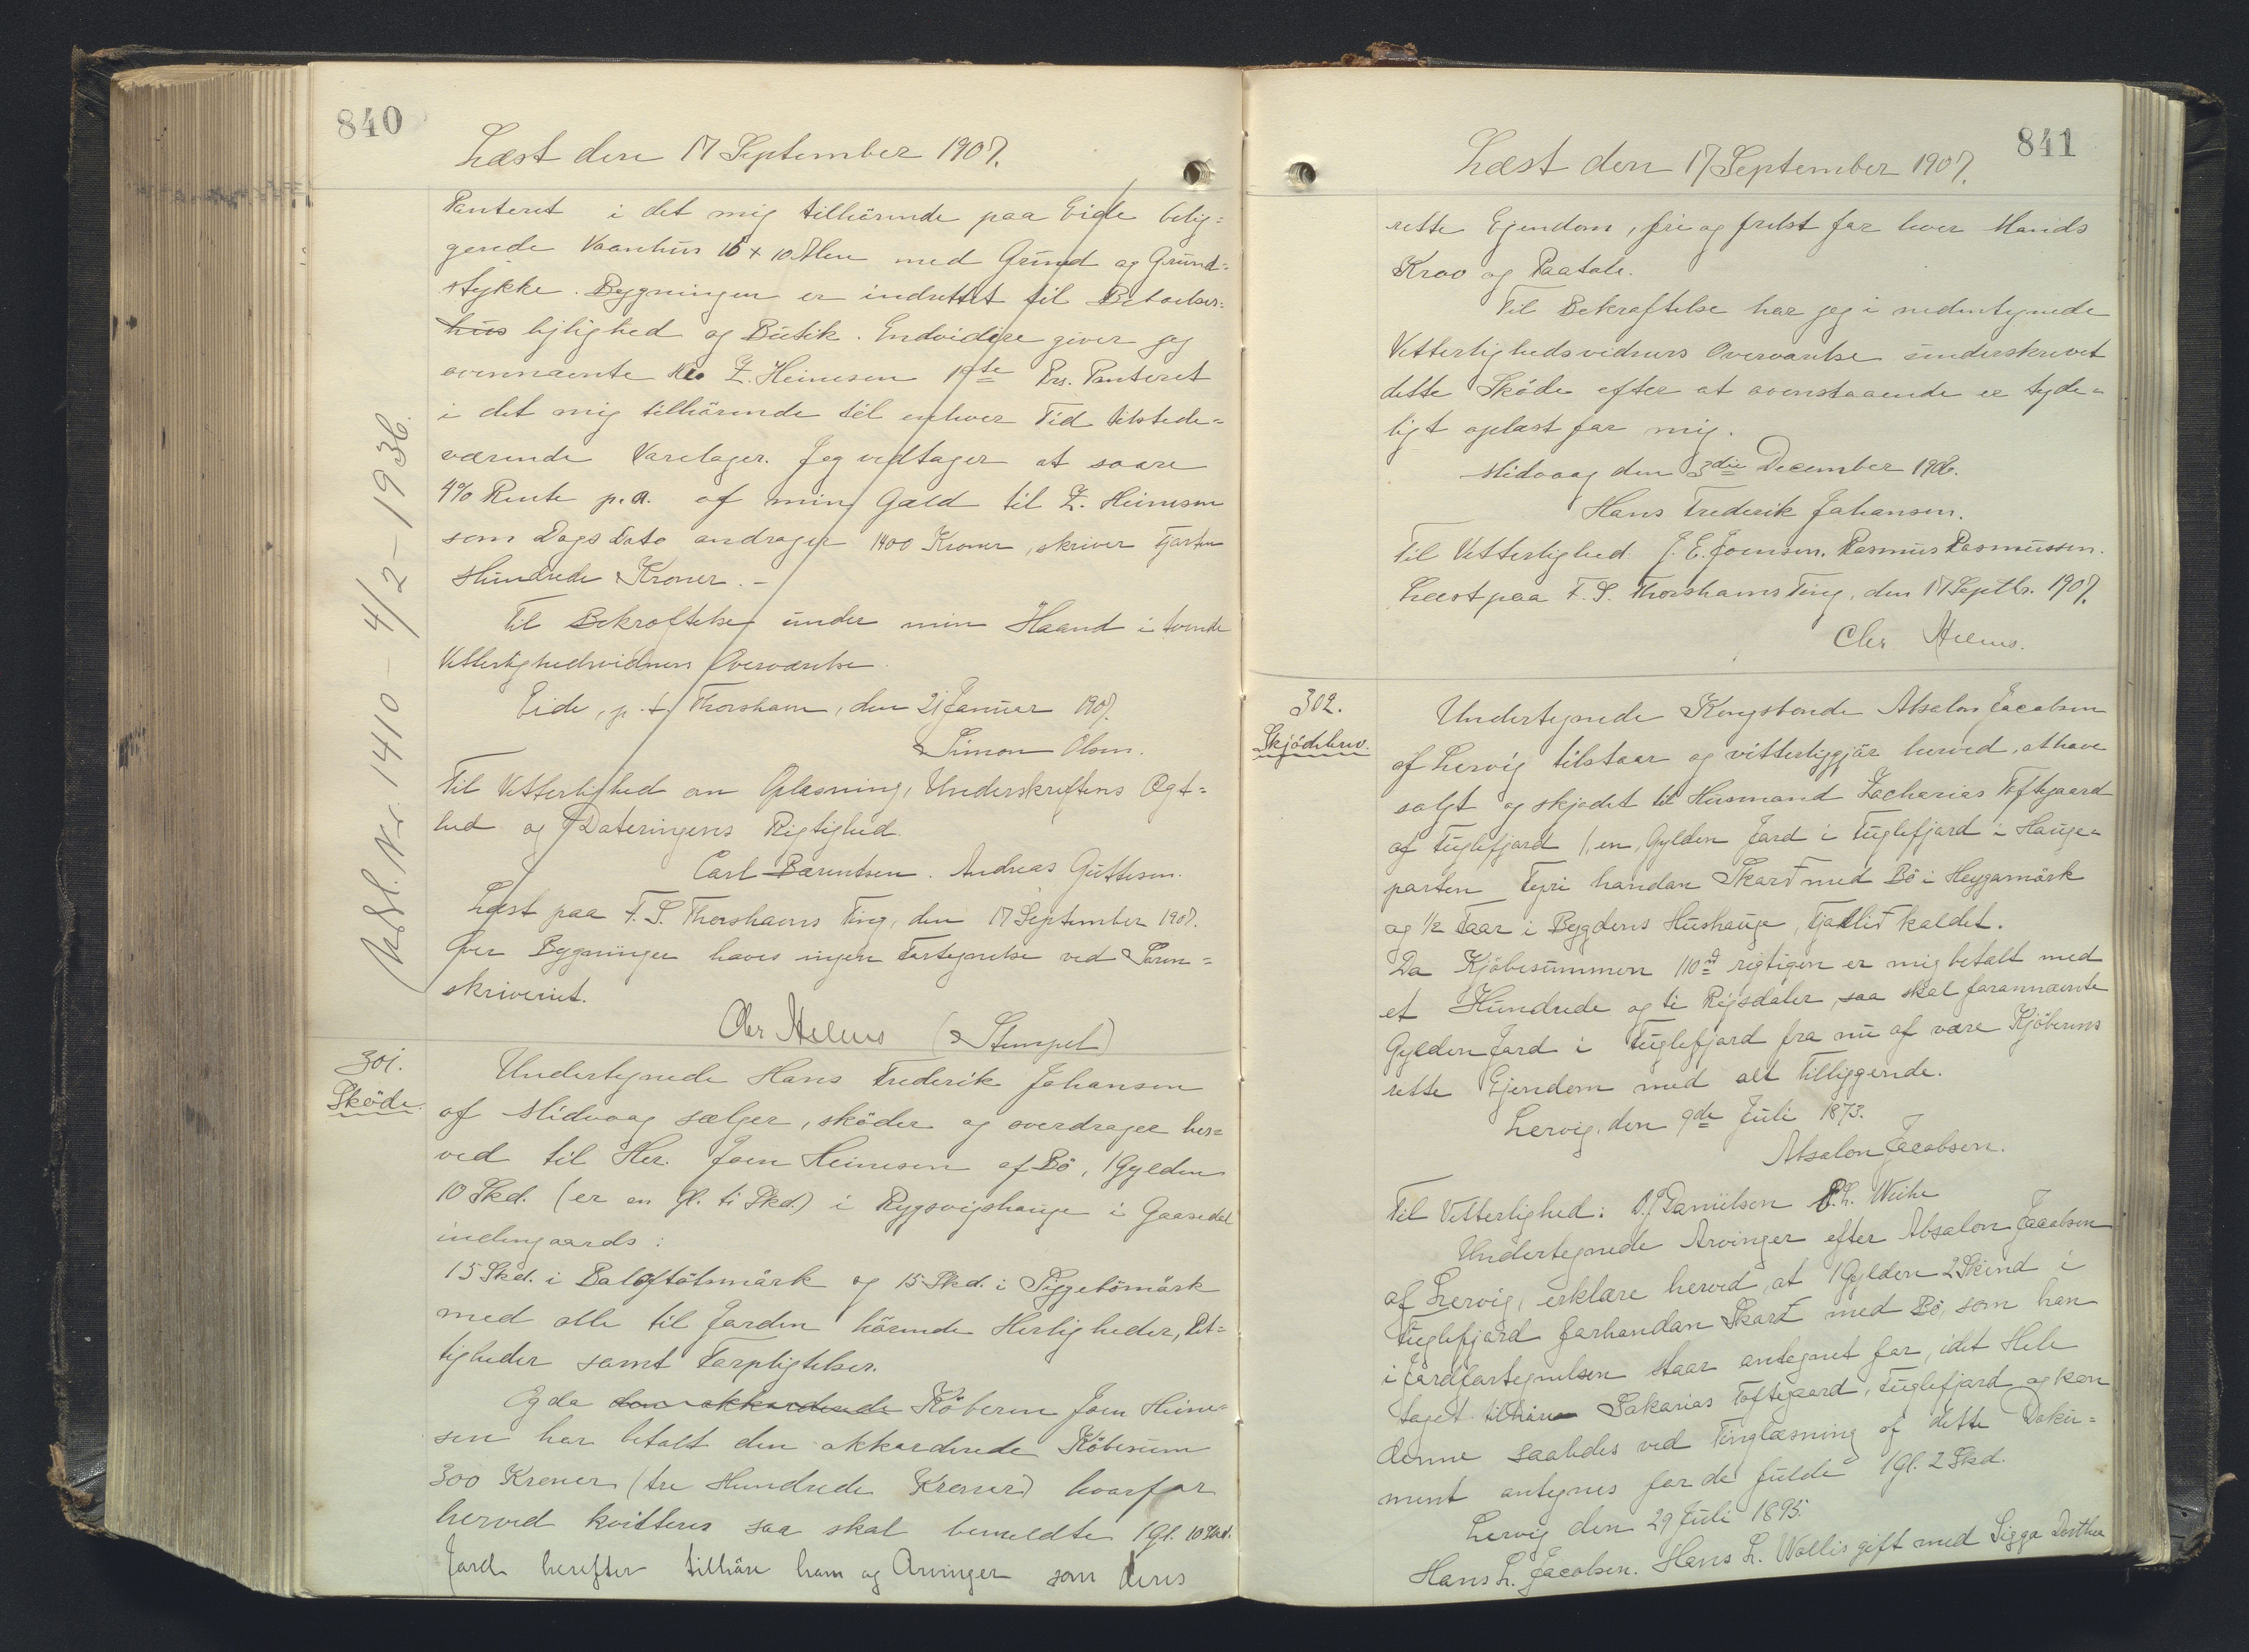 840
Læst den 17 September 1907.
Panteret i det mig tilhörende paa Eide belig=
gende Vaanhus 16 x 10 Alen med Grund og Grund=
stykke. Bygningen er indrettet til Beboelses=
hus lejlighed og Butik. Endvidere giver jeg
ovennævnte Z. Heinesen 1ste Prs. Panteret
i det mig tilhörende til enhver Tid tilstede=
værende Varelager. Jeg vedtager at svare
4% Rente p.a. af min Gæld til Z. Heinesen
som Dags Dato andrager 1400 Kroner, skriver Fjorten
Hundrede Kroner. -
Til Bekræftelse under min Haand i tvende
Vitterlighedsvidners Overværelse.
Eide, p.t. Thorshavn, den 21 Januar 1907.
Simon Olsen.
Til Vitterlighed om Oplæsning, Underskriftens Ægt=
hed og Dateringens Rigtighed.
Carl Barentsen. Andreas Guttesen.
Læst paa F. S. Thorshavns Ting, den 17 September 1907.
Over Bygninger haves ingen Fortegnelse ved Soren=
skriveriet.
Chr Helms (Stempel)
Udsl. Nr. 1410 - 4/2 - 1936.
301.
Sköde.
Undertegnede Hans Frederik Johansen
af Midvaag sælger, sköder og overdrager her=
ved til Hr. Joen Heinesen af Bö, 1 Gylden
10 Skd. (er en Gl. ti Skd.) i Rygsvigshauge i Gaasedal
indengaards:
15 Skd. i Baloftötsmärk og 15 Skd. i Siggetömärk
med alle til Jorden hörende Herligheder, Ret=
tigheder samt Forpligtelser.
Og da den akkorderede Köberen Joen Heine=
sen har betalt den akkorderede Köbesum
300 Kroner (tre Hundrede Kroner) hvorfor
herved kvitteres saa skal bemeldte 1 Gl. 10 Skd.
Jord herefter tilhöre ham og Arvinger som deres
841
Læst den 17 September 1907.
rette Ejendom, fri og frelst for hver Mands
Krav og Paatale.
Til Bekræftelse har jeg i nedentegnede
Vitterlighedsvidners Overværelse underskrevet
dette Sköde efter at ovenstaaende er tyde=
ligt oplæst for mig.
Midvaag den 3die December 1906.
Hans Frederik Johansen.
Til Vitterlighed: J. E. Joensen. Rasmus Rasmussen.
Læst paa F. S. Thorshavns Ting, den 17 Septbr. 1907.
Chr Helms.
302.
Skjödebrev.
Undertegnede Kongsbonde Absalon Jacobsen
af Lervig tilstaar og vitterliggjör herved, at have
solgt og skjødet til Husmand Zacharias Toftegaard
af Fuglefjord 1, en, Gylden Jord i Fuglefjord i Hauge-
parten Fyri handan Skarð med Bö i Heygamörk
og 1/2 Faar i Bygdens Hushauge, Fjallið kaldet.
Da Kjöbesummen 110 rd rigtigen er mig betalt med
et Hundrede og ti Rigsdaler, saa skal forannævnte
Gylden Jord i Fuglefjord fra nu af være Kjöberens
rette Ejendom med alt Tilliggende.
Lervig, den 9de Juli 1873.
Absalon Jacobsen.
Til Vitterlighed: D. J. Danielsen P. L. Weihe
Undertegnede Arvinger efter Absalon Jacobsen
af Lervig, erklære herved, at 1 Gylden 2 Skind i
Fuglefjord Forhandan Skarð med Bö, som han
i Jordfortegnelsen staar antegnet for, i det Hele
taget tilhöre Sakarias Toftegaard, Fuglefjord og kan
denne saaledes ved Tinglæsning af dette Doku=
ment antegnes for de fulde 1 Gl. 2 Skd.
Lervig den 29 Juli 1895.
Hans L. Jacobsen. Hans L. Wollis gift med Sigga Dorthea